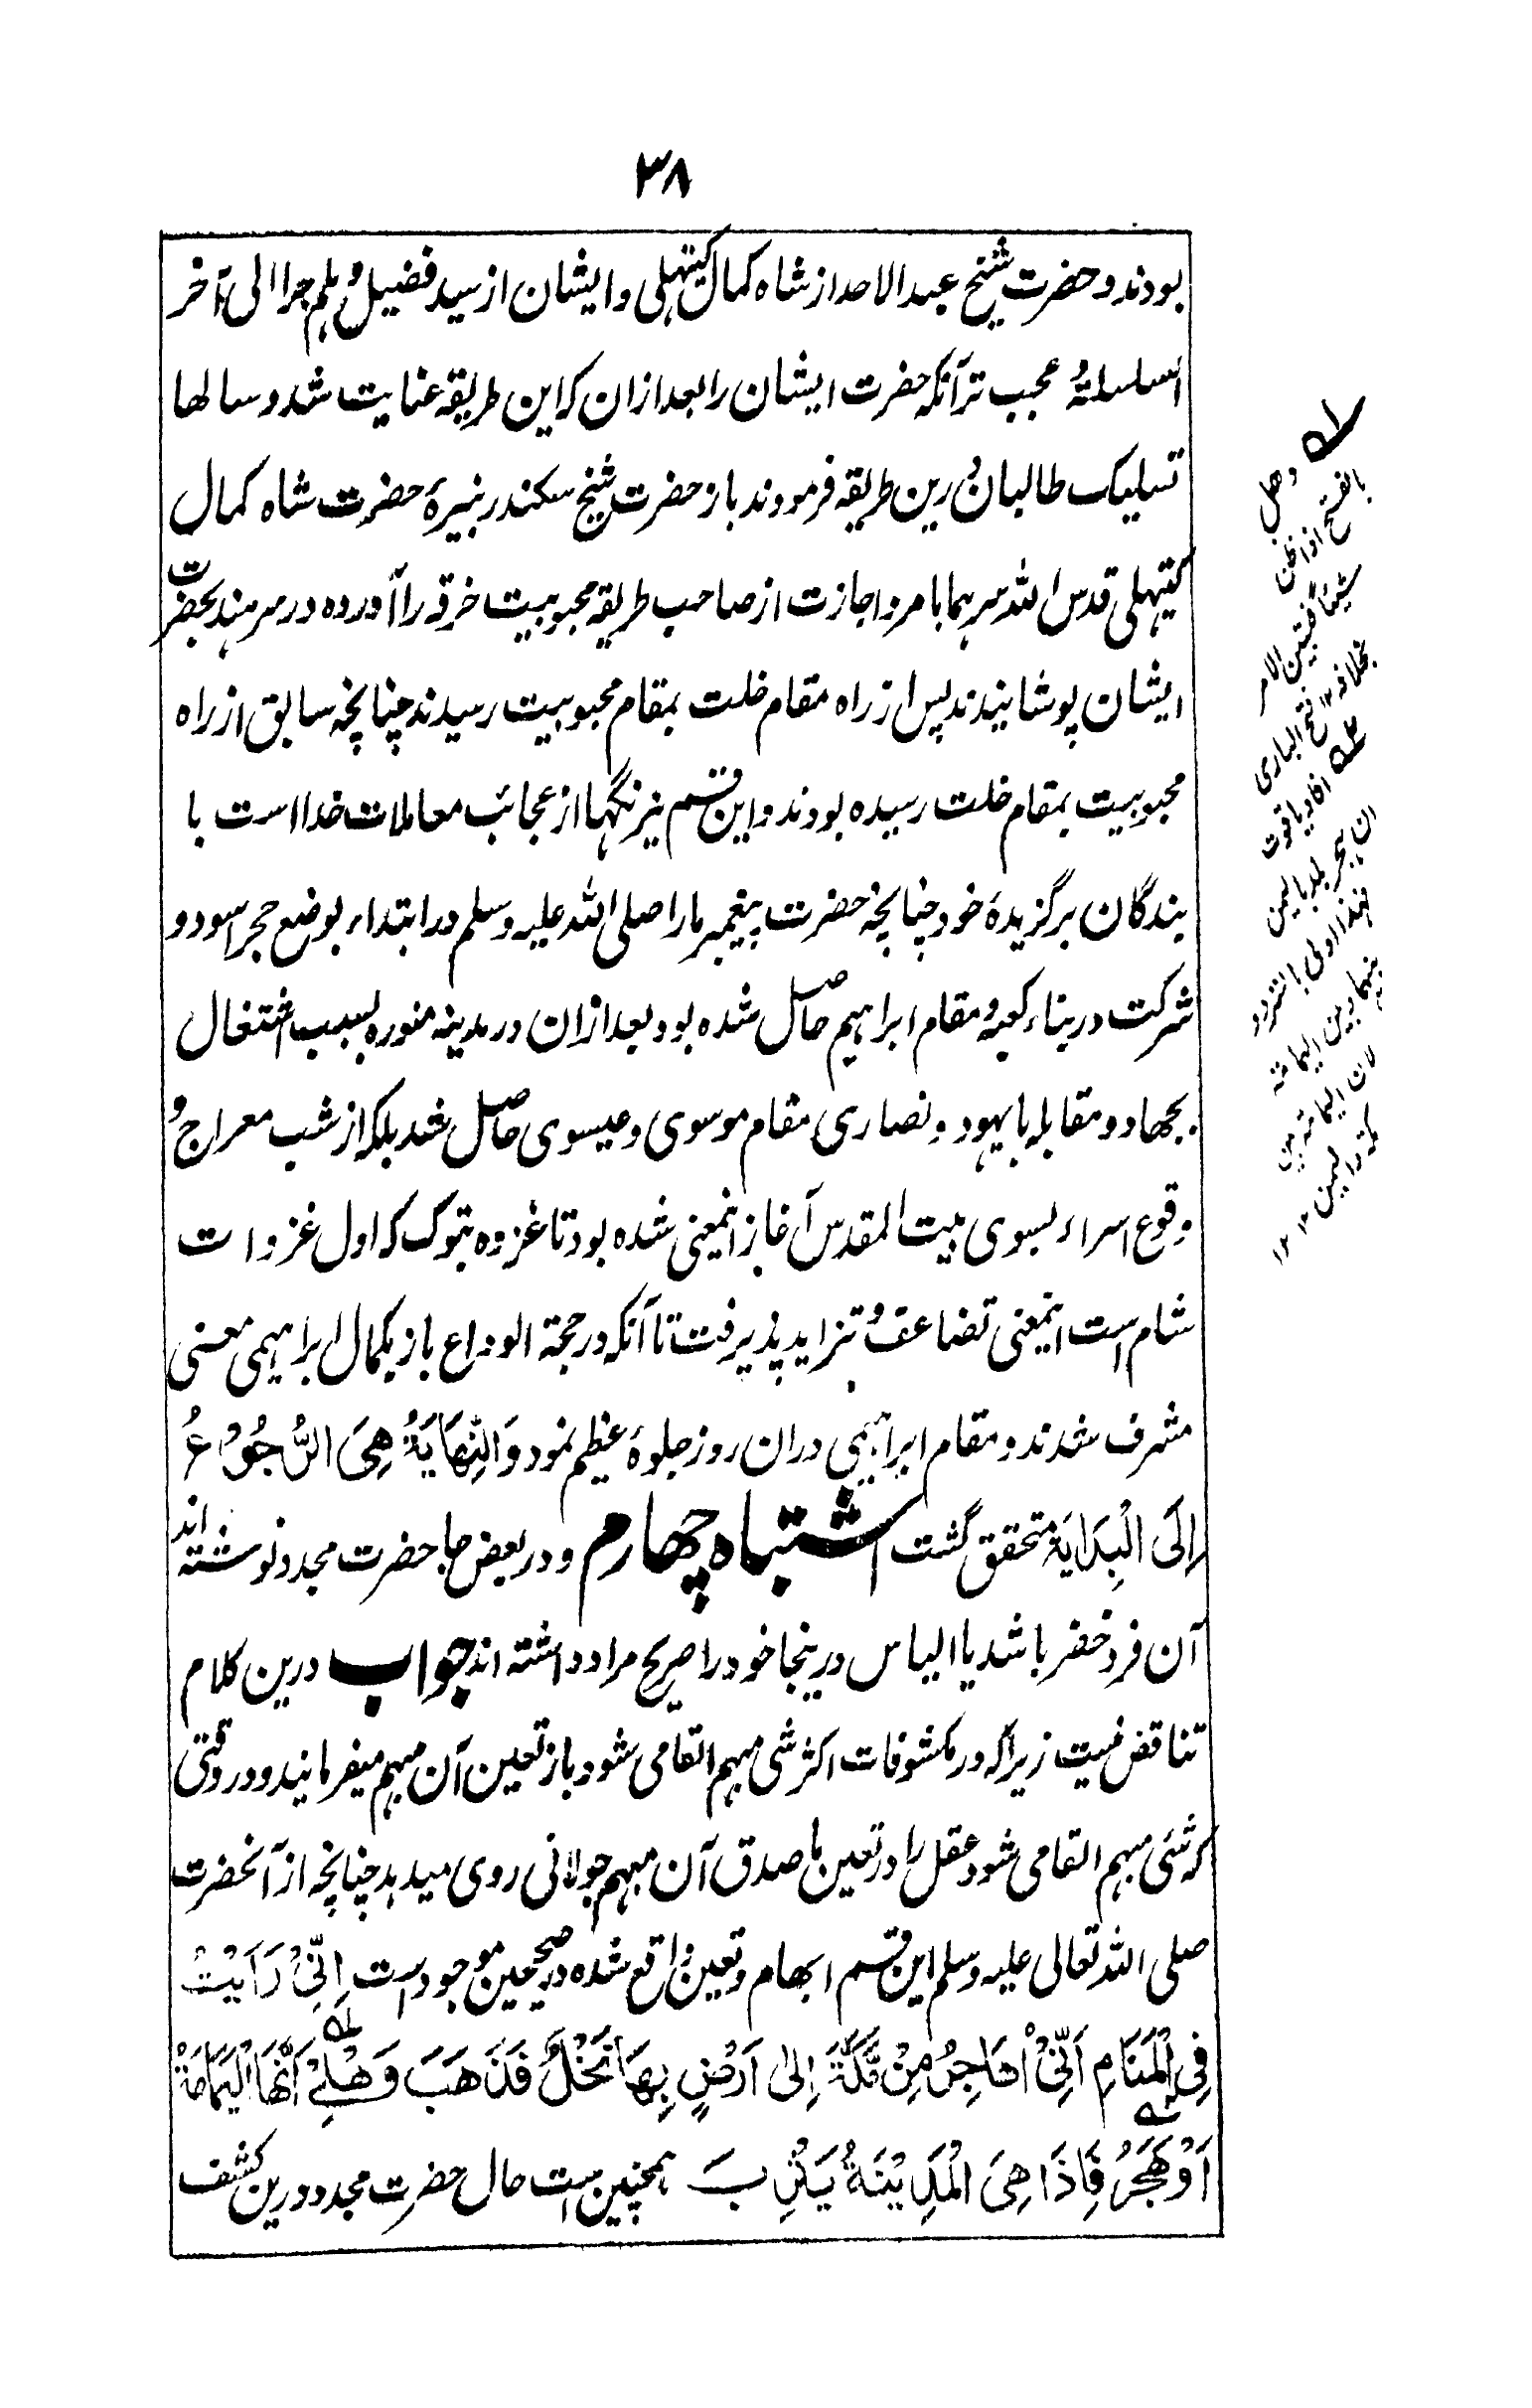 ۳۸
بودند و حضرت شیخ عبدالاحد از شاه کمال کیتهلی و ایشان از سید فضیل و هلم جرا الی آخر
السلسلة و عجب تر آنکه حضرت ایشان را بعد ازان که این طریقه عنایت شد و سالها
تسلیک طالبان درین طریقه فرمودند باز حضرت شیخ سکندر نبیرۀ حضرت شاه کمال
کیتهلی قدس الله سرهما بامر و اجازت از صاحب طریقه محبوبیت خرقه را آورده در سرهند بحضرت
ایشان پوشانیدند پس از راه مقام خلت بمقام محبوبیت رسیدند چنانچه سابق از راه
محبوبیت بمقام خلت رسیده بودند و این قسم نیرنگیها از عجائب معاملات خدا است با
بندگان برگزیدۀ خود چنانچه حضرت پیغمبر ما را صلی الله علیه وسلم در ابتداء بوضع حجر اسود و
شرکت در بناء کعبه مقام ابراهیم حاصل شده بود بعد ازان در مدینه منوره بسبب اشتغال
بجهاد و مقابله با یهود و نصاری مقام موسوی و عیسوی حاصل شد بلکه از شب معراج و
وقوع اسراء بسوی بیت المقدس آغاز اینمعنی شده بود تا غزوه تبوک که اول غزوات
شام است اینمعنی تضاعف و تزاید پذیرفت تا آنکه در حجة الوداع باز بکمال ابراهیمی معنی
مشرف شدند و مقام ابراهیمی دران روز جلوۀ عظیم نمود وَالنِّهَايَةُ هِيَ الرُّجُوْعُ
إِلَى الْبِدَايَةِ متحقق گشت اشتباه چهارم و در بعض جا حضرت مجدد نوشته اند
آن فرد خضر باشد یا الیاس درینجا خود را صریح مراد داشته اند جواب درین کلام
تناقض نیست زیراکه در مکشوفات اکثر شی مبهم القا می شود باز تعین آن مبهم میفرمایند و در وقتی
که شئی مبهم القا می شود عقل را در تعین ما صدق آن مبهم جولانی روی میدهد چنانچه از آنحضرت
صلی الله تعالی علیه وسلم این قسم ابهام و تعین واقع شده در صحیحین موجود است اِنِّيْ رَاَيْتُ
فِي الْمَنَامِ اَنِّيْ اُهَاجِرُ مِنْ مَّكَّةَ اِلىٰ اَرْضٍ بِهَا نَخْلٌ فَذَهَبَ وَهْلِيْ اَنَّهَا الْيَمَامَةُ
اَوْ هَجَرُ فَاِذَا هِيَ الْمَدِيْنَةُ يَثْرِبَ همچنین است حال حضرت مجدد درین کشف
وهل
بالفتح اذا ظن
شیئا فتبین الامر
بخلافه ۱۲ فتح الباری
افاد یاقوت
ان هجر بلد بالیمن
فهذا اولی بالتردد
بینها وبین الیمامة
لان الیمامة بین
مکة والیمن ۱۲